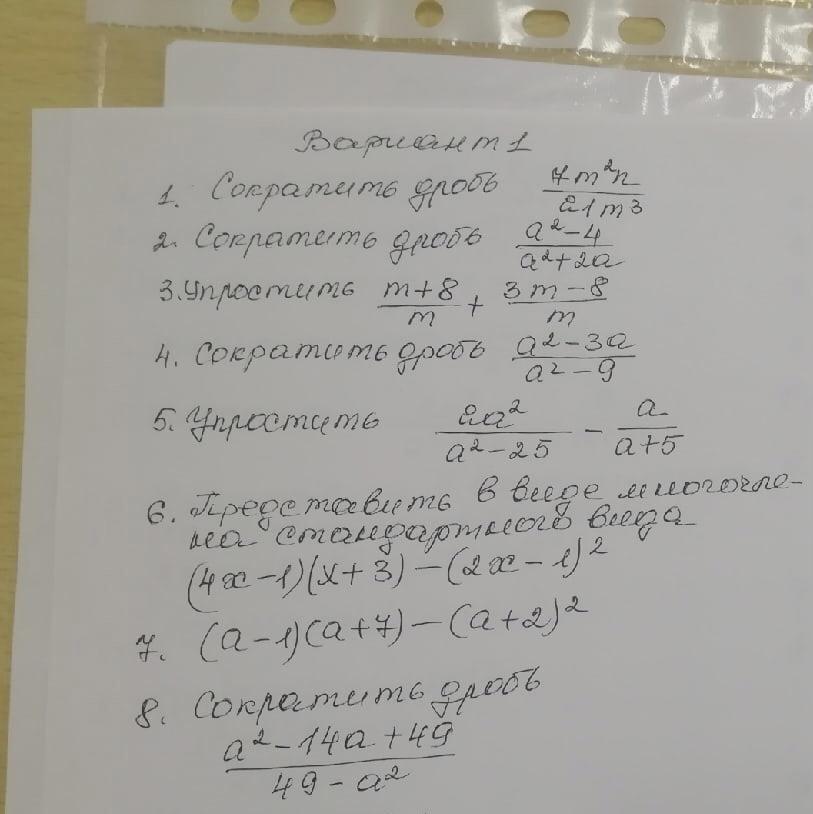 Вариант 1
1. Сократить дробь 7m²n / 21m3
2. Сократить дробь a²-4 / a²+2a
3. Упростить m+8 / m + 3m-8 / m
4. Сократить дробь a²-3a / a²-9
5. Упростить 2a² / a²-25 - a / a+5
6. Представить в виде многочле-
на стандартного вида
(4x-1)(x+3)-(2x-1)²
7. (a-1)(a+7)-(a+2)²
8. Сократить дробь
a²-14a+49 / 49-a²